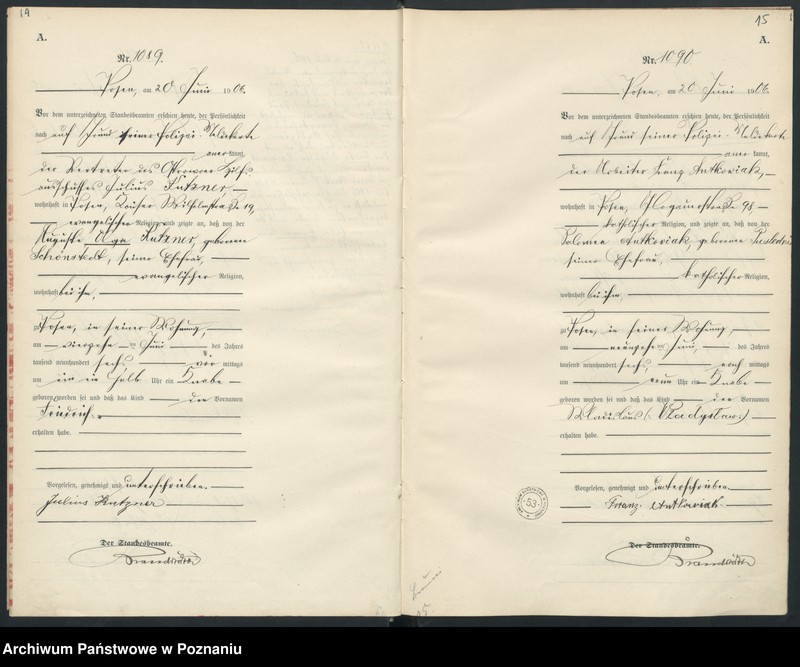 14
A.
Nr. 1089.
Posen, am 20 Juni 1906.
Vor dem unterzeichneten Standesbeamten erschien heute, der Persönlichkeit
nach auf Grund seiner Polizei-Meldekarte
anerkannt,
der Vertreter des
Julius Kutzner,
wohnhaft in Posen, Kaiser Wilhelmstraße 19,
evangelischer Religion, und zeigte an, daß von der
Auguste Olga Kutzner, geborenen
seiner Ehefrau,
evangelischer Religion,
wohnhaft bei ihm,
zu Posen, in seiner Wohnung,
am Juni des Jahres
tausend neunhundert sechs vormittags
um ein ein halb Uhr ein Knabe
geboren worden sei und daß das Kind den Vornamen
Friedrich
erhalten habe.
Vorgelesen, genehmigt und unterschrieben.
Julius Kutzner
Der Standesbeamte.
15
A.
Nr. 1090.
Posen, am 20 Juni 1906.
Vor dem unterzeichneten Standesbeamten erschien heute, der Persönlichkeit
nach auf Grund seiner Polizei-Meldekarte
anerkannt,
der Arbeiter Franz Antkowiak,
wohnhaft in Posen, Glogauerstraße 98,
katholischer Religion, und zeigte an, daß von der
Salomea Antkowiak, geborenen
seiner Ehefrau,
katholischer Religion,
wohnhaft bei ihm,
zu Posen, in seiner Wohnung,
am Juni, des Jahres
tausend neunhundert sechs, nachmittags
um neun Uhr ein Knabe
geboren worden sei und daß das Kind den Vornamen
Wladislaus (Władysław)
erhalten habe.
Vorgelesen, genehmigt und unterschrieben.
Franz Antkowiak
Der Standesbeamte.
53
15
Archiwum Państwowe w Poznaniu